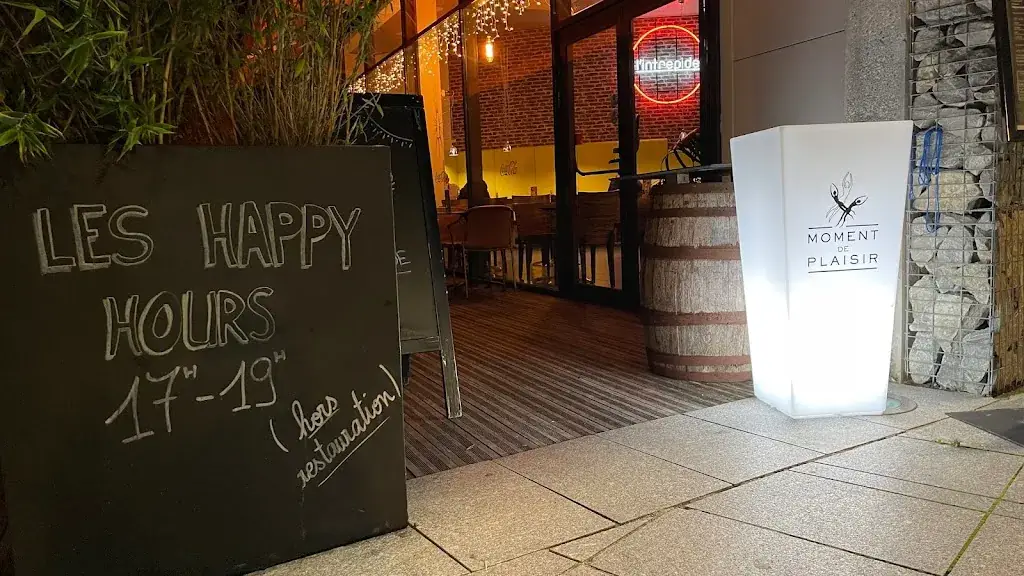 LES HAPPY
HOURS
17H-19H
(hors
restauration)
l'intrépide
MOMENT
DE
PLAISIR